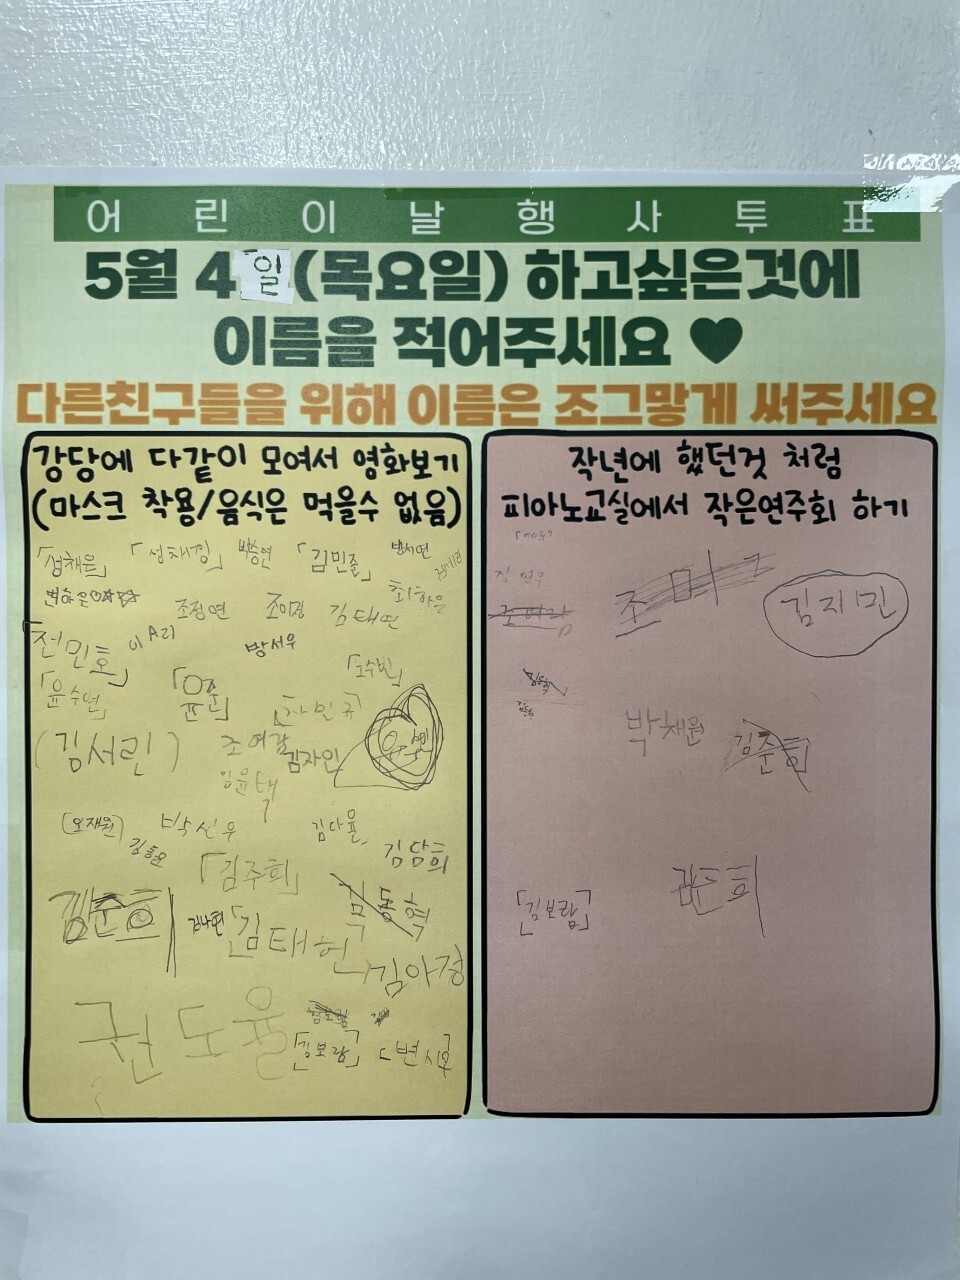 어린이날행사투표
5월 4일 (목요일) 하고싶은것에
이름을 적어주세요 ♥
다른친구들을 위해 이름은 조그맣게 써주세요
강당에 다같이 모여서 영화보기
(마스크 착용/음식은 먹을수 없음)
「성채은」 「성채경」 박승연 「김민준」 방서연
변하은 조정연 조이정 김태연 최하을
전민호」 이A리 방서우
「윤수연」 「윤준」 [차민규] 「노수빈」
(김서린) 조여갈 김자인
임윤택
(오재원) 박신우 김다율
김담희
「김주희」
김준희 김나현 「김태헌 김동혁
김아정
권도율
[김보람] 변시후
작년에 했던것 처럼
피아노교실에서 작은연주회 하기
김연우 김지민
박채원 김준희
[김보람] 김준희